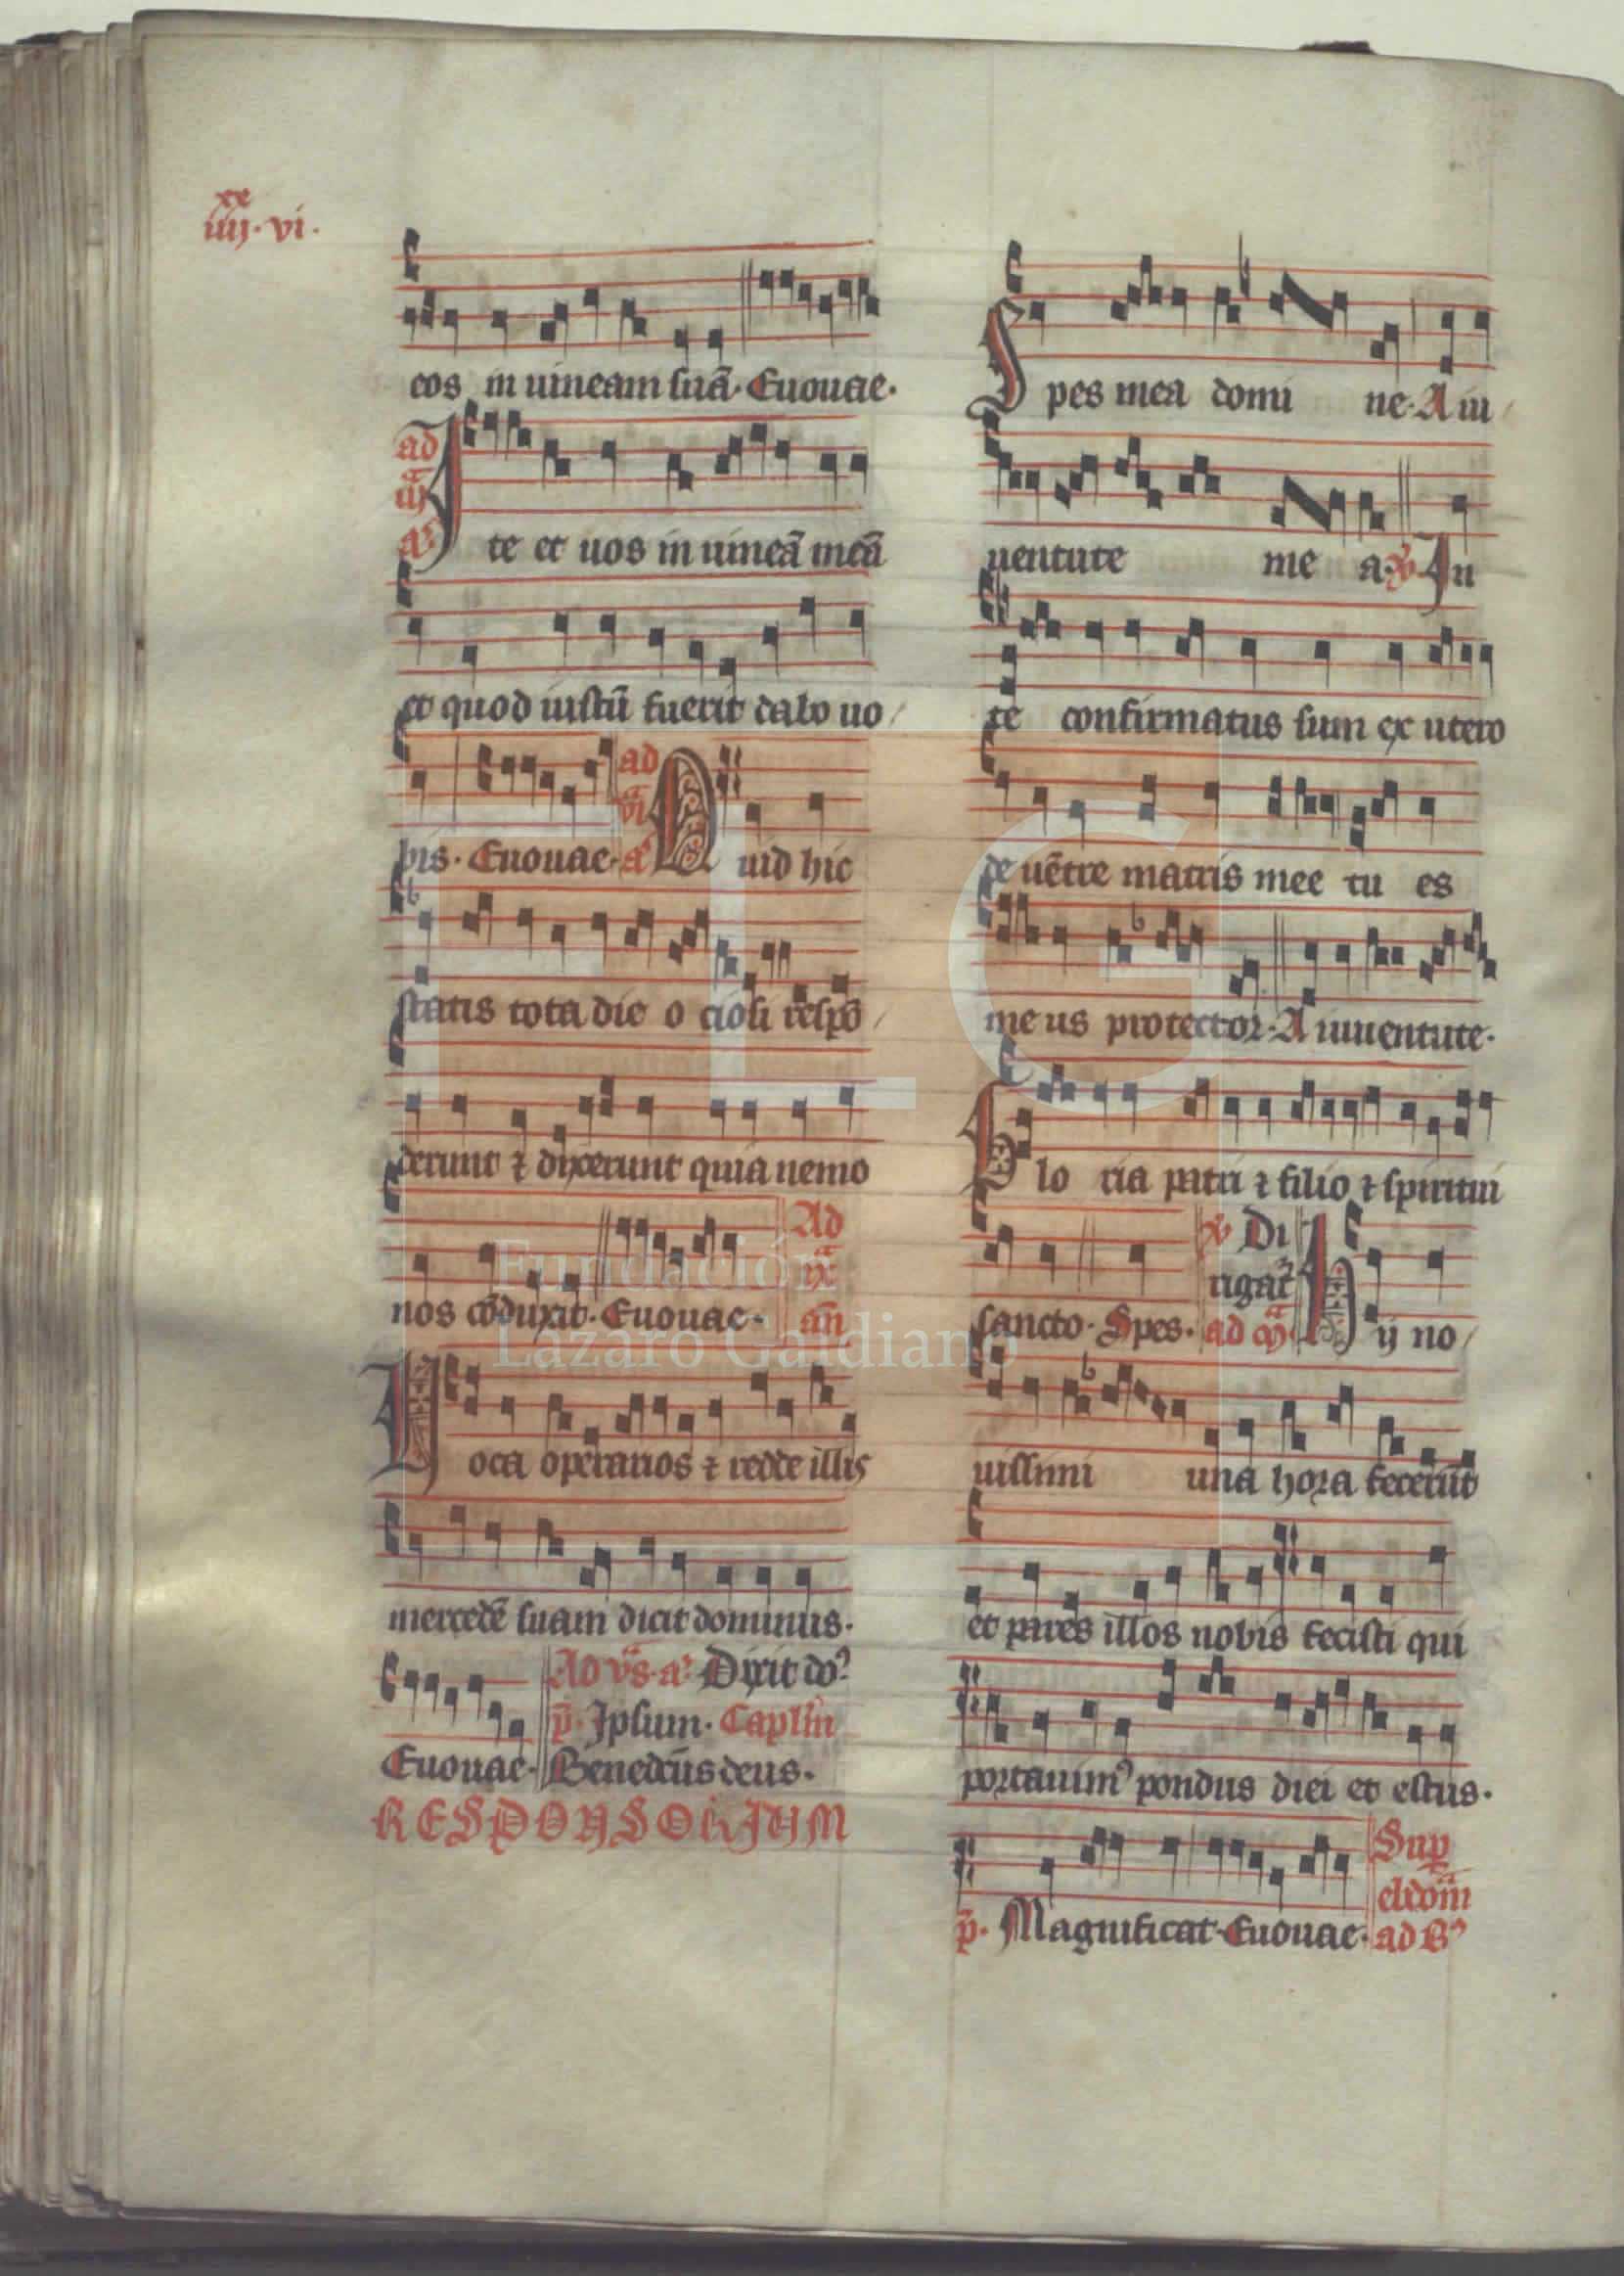 xx
iiij. vi.
eos in uineam suā. Euouae.
ad
iijᵃ
aᵃ
Ite et uos in uineā meā
et quod iustū fuerit dabo uo/
bis. Euouae.
ad
viᵃ
aᵃ
Quid hic
statis tota die ociosi respō/
derunt ⁊ dixerunt quia nemo
nos cōduxit. Euouae.
Ad
ixᵃ
an̄
Uoca operarios ⁊ redde illis
mercedē suam dicit dominus.
Euouae.
Ad vᵃs. aᵃ. Dixit do.
p̄. Ipsum. Caplm̄
Benedc̄us deus.
RESPONSORIUM
Spes mea domine. A iu/
uentute mea. ꝟ In
te confirmatus sum ex utero
de uētre matris mee tu es
meus protector. A iuuentute.
Gloria patri ⁊ filio ⁊ spiritui
sancto. Spes.
ꝟ Di
rigat᷑
ad mᵃ.
Hij no/
uissimi una hora fecerūt
et pares illos nobis fecisti qui
portauim᷒ pondus diei et estus.
p̄. Magnificat. Euouae.
Sup
ebdom̄
ad B᷒
Fundación
Lázaro Galdiano
FLG